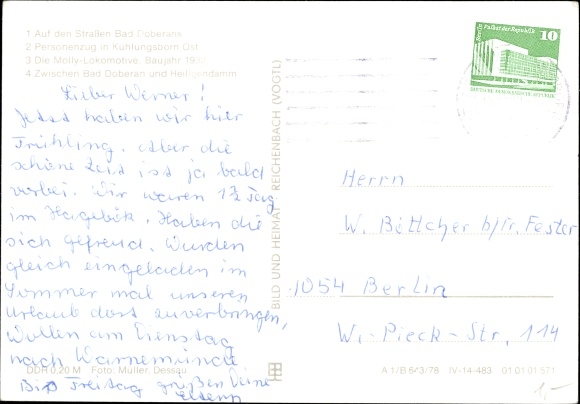 1 Auf den Straßen Bad Doberans
2 Personenzug in Kühlungsborn Ost
3 Die Molly-Lokomotive, Baujahr
4 Zwischen Bad Doberan und Heiligendamm
Lieber Werner!
Jetzt haben wir hier
Frühling. Aber die
schöne Zeit ist ja bald
vorbei. Wir waren 1½ Tag
im Hagebök. Haben die
sich gefreud. Wurden
gleich eingeladen im
Sommer mal unseren
Urlaub dort zuverbringen,
Wollen am Dienstag
nach Warnemünde
Bis Freitag grüßen Deine
Eltern
DDR 0,20 M Foto: Müller, Dessau
BILD UND HEIMAT REICHENBACH (VOGTL)
Berlin, Palast der Republik
10
DEUTSCHE DEMOKRATISCHE REPUBLIK
Herrn
W. Böttcher b/Fr. Fester
1054 Berlin
W.-Pieck-Str. 114
A 1/B 643/78 IV-14-483 01 01 01 571